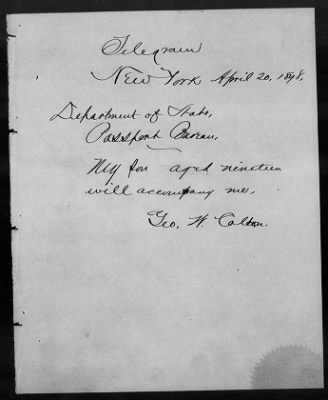 Telegram
New York April 20, 1898.
Department of State,
Passport Bureau,
My son aged nineteen
will accompany me.
Geo. W. Colton.